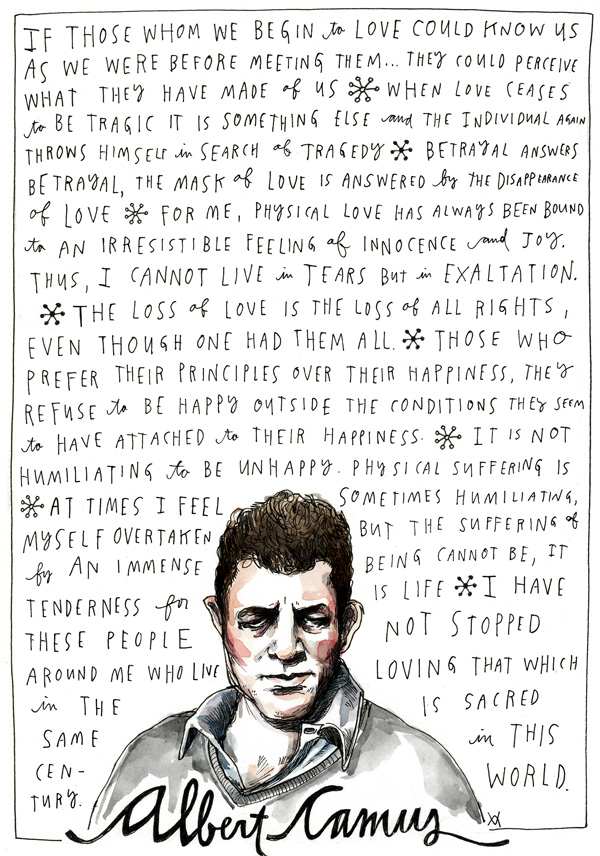 IF THOSE WHOM WE BEGIN to LOVE COULD KNOW US
AS WE WERE BEFORE MEETING THEM... THEY COULD PERCEIVE
WHAT THEY HAVE MADE of US * WHEN LOVE CEASES
to BE TRAGIC IT IS SOMETHING ELSE and THE INDIVIDUAL AGAIN
THROWS HIMSELF in SEARCH of TRAGEDY * BETRAYAL ANSWERS
BETRAYAL, THE MASK of LOVE IS ANSWERED by THE DISAPPEARANCE
of LOVE * FOR ME, PHYSICAL LOVE HAS ALWAYS BEEN BOUND
to AN IRRESISTIBLE FEELING of INNOCENCE and JOY.
THUS, I CANNOT LIVE in TEARS BUT in EXALTATION.
* THE LOSS of LOVE IS THE LOSS of ALL RIGHTS,
EVEN THOUGH ONE HAD THEM ALL. * THOSE WHO
PREFER THEIR PRINCIPLES OVER THEIR HAPPINESS, THEY
REFUSE to BE HAPPY OUTSIDE THE CONDITIONS THEY SEEM
to HAVE ATTACHED to THEIR HAPPINESS. * IT IS NOT
HUMILIATING to BE UNHAPPY. PHYSICAL SUFFERING IS
SOMETIMES HUMILIATING,
BUT THE SUFFERING of
BEING CANNOT BE, IT
IS LIFE * I HAVE
NOT STOPPED
LOVING THAT WHICH
IS SACRED
in THIS
WORLD.
* AT TIMES I FEEL
MYSELF OVERTAKEN
by AN IMMENSE
TENDERNESS for
THESE PEOPLE
AROUND ME WHO LIVE
in THE
SAME
CEN-
TURY.
Albert Camus